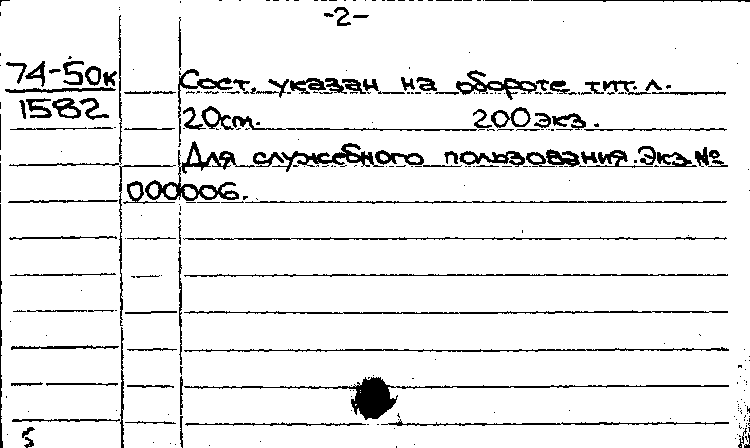 -2-
74-50к
1582
Сост. указан на обороте тит. л.
20см. 200экз.
Для служебного пользования. Экз. №
000006.
5